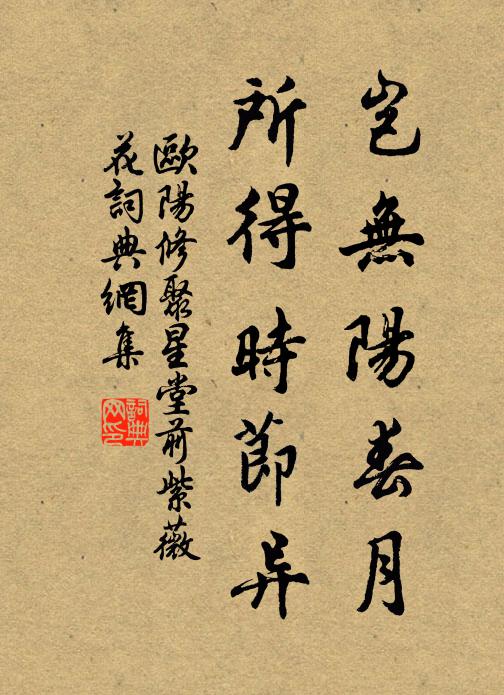 豈無陽春月
所得時節异
歐陽修聚星堂前紫薇
花詞典網集
詞典
网印